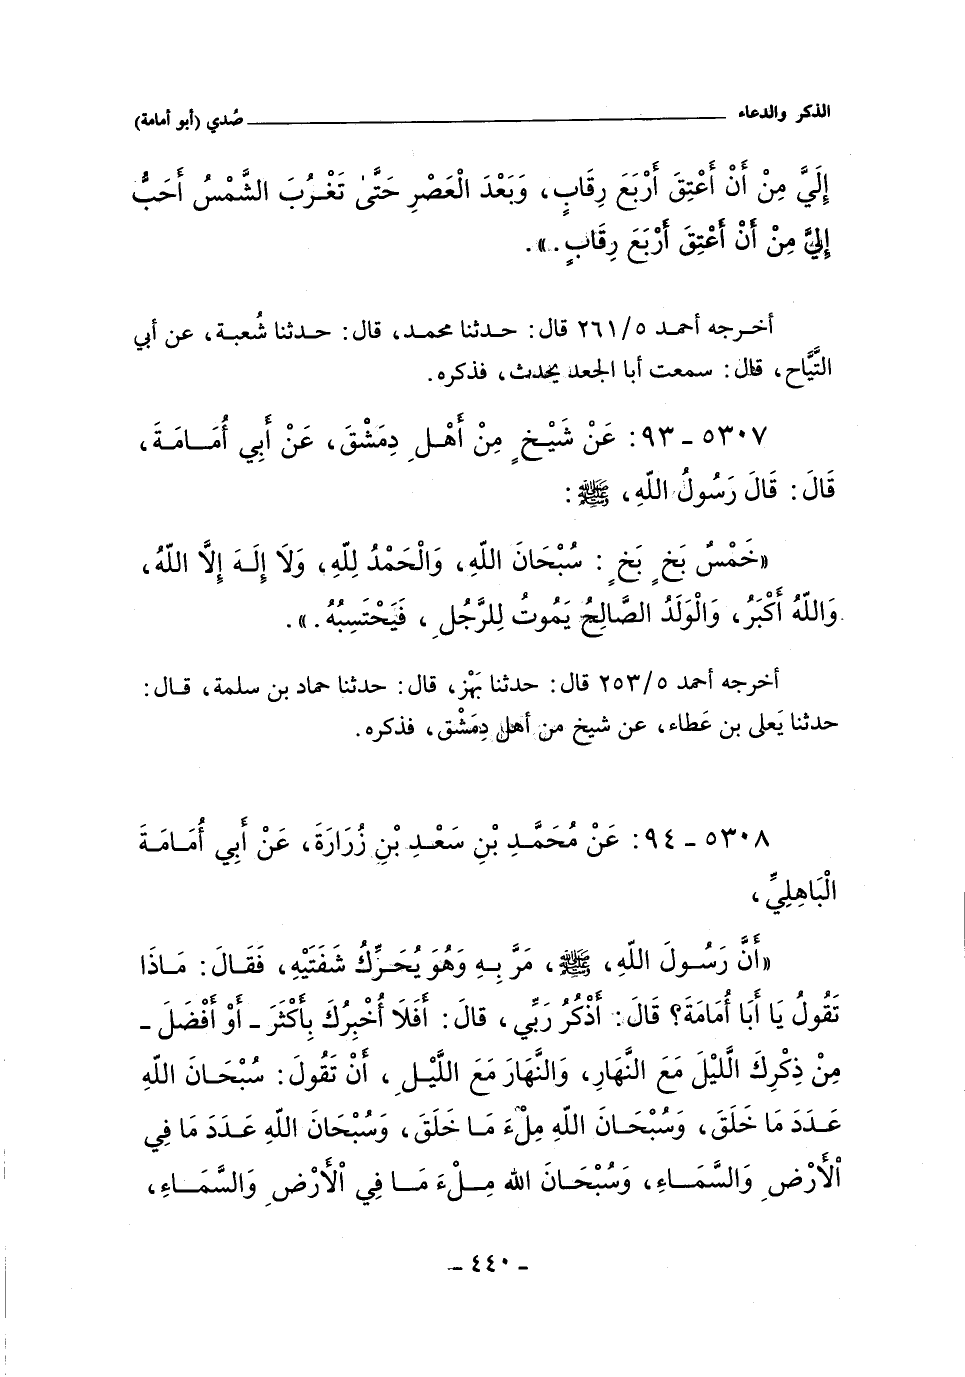 الذكر والدعاء ــــــــــــــــــــ صُدي (أبو أمامة)
إِلَيَّ مِنْ أَنْ أُعْتِقَ أَرْبَعَ رِقَابٍ، وَبَعْدَ الْعَصْرِ حَتَّىٰ تَغْرُبَ الشَّمْسُ أَحَبُّ
إِلَيَّ مِنْ أَنْ أُعْتِقَ أَرْبَعَ رِقَابٍ.».
أخرجه أحمد ٢٦١/٥ قال: حدثنا محمد، قال: حدثنا شُعبة، عن أبي
التَّيَّاح، قال: سمعت أبا الجعد يحدث، فذكره.
٥٣٠٧ - ٩٣: عَنْ شَيْخٍ مِنْ أَهْلِ دِمَشْقَ، عَنْ أَبِي أُمَامَةَ،
قَالَ: قَالَ رَسُولُ اللّهِ، ﷺ:
«خَمْسٌ بَخٍ بَخٍ: سُبْحَانَ اللّهِ، وَالْحَمْدُ لِلّهِ، وَلَا إِلَهَ إِلَّا اللّهُ،
وَاللّهُ أَكْبَرُ، وَالْوَلَدُ الصَّالِحُ يَمُوتُ لِلرَّجُلِ، فَيَحْتَسِبُهُ.».
أخرجه أحمد ٢٥٣/٥ قال: حدثنا بَهْز، قال: حدثنا حماد بن سلمة، قال:
حدثنا يَعلى بن عَطاء، عن شيخ من أهل دِمَشْق، فذكره.
٥٣٠٨ - ٩٤: عَنْ مُحَمَّدِ بْنِ سَعْدِ بْنِ زُرَارَةَ، عَنْ أَبِي أُمَامَةَ
الْبَاهِلِيِّ،
«أَنَّ رَسُولَ اللّهِ، ﷺ، مَرَّ بِهِ وَهُوَ يُحَرِّكُ شَفَتَيْهِ، فَقَالَ: مَاذَا
تَقُولُ يَا أَبَا أُمَامَةَ؟ قَالَ: أَذْكُرُ رَبِّي، قالَ: أَفَلَا أُخْبِرُكَ بِأَكْثَرَ - أَوْ أَفْضَلَ -
مِنْ ذِكْرِكَ الَّليْلَ مَعَ النَّهَارِ، وَالنَّهَارَ مَعَ اللَّيْلِ، أَنْ تَقُولَ: سُبْحَانَ اللّهِ
عَدَدَ مَا خَلَقَ، وَسُبْحَانَ اللّهِ مِلْءَ مَا خَلَقَ، وَسُبْحَانَ اللّهِ عَدَدَ مَا فِي
الْأَرْضِ وَالسَّمَاءِ، وَسُبْحَانَ الله مِلْءَ مَا فِي الْأَرْضِ وَالسَّمَاءِ،
- ٤٤٠ -